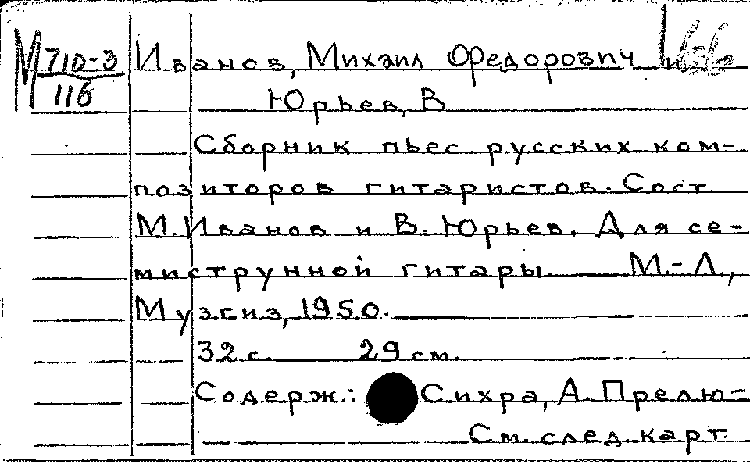 М 710-3 Иванов, Михаил Федорович и
116
Юрьев, В
Сборник пьес русских ком-
позиторов гитаристов. Сост
М. Иванов и В. Юрьев. Для се-
миструнной гитары М.-Л.,
Музгиз, 1950.
32 с. 29 см.
Содерж.: Сихра, А. Прелю-
См. след. карт